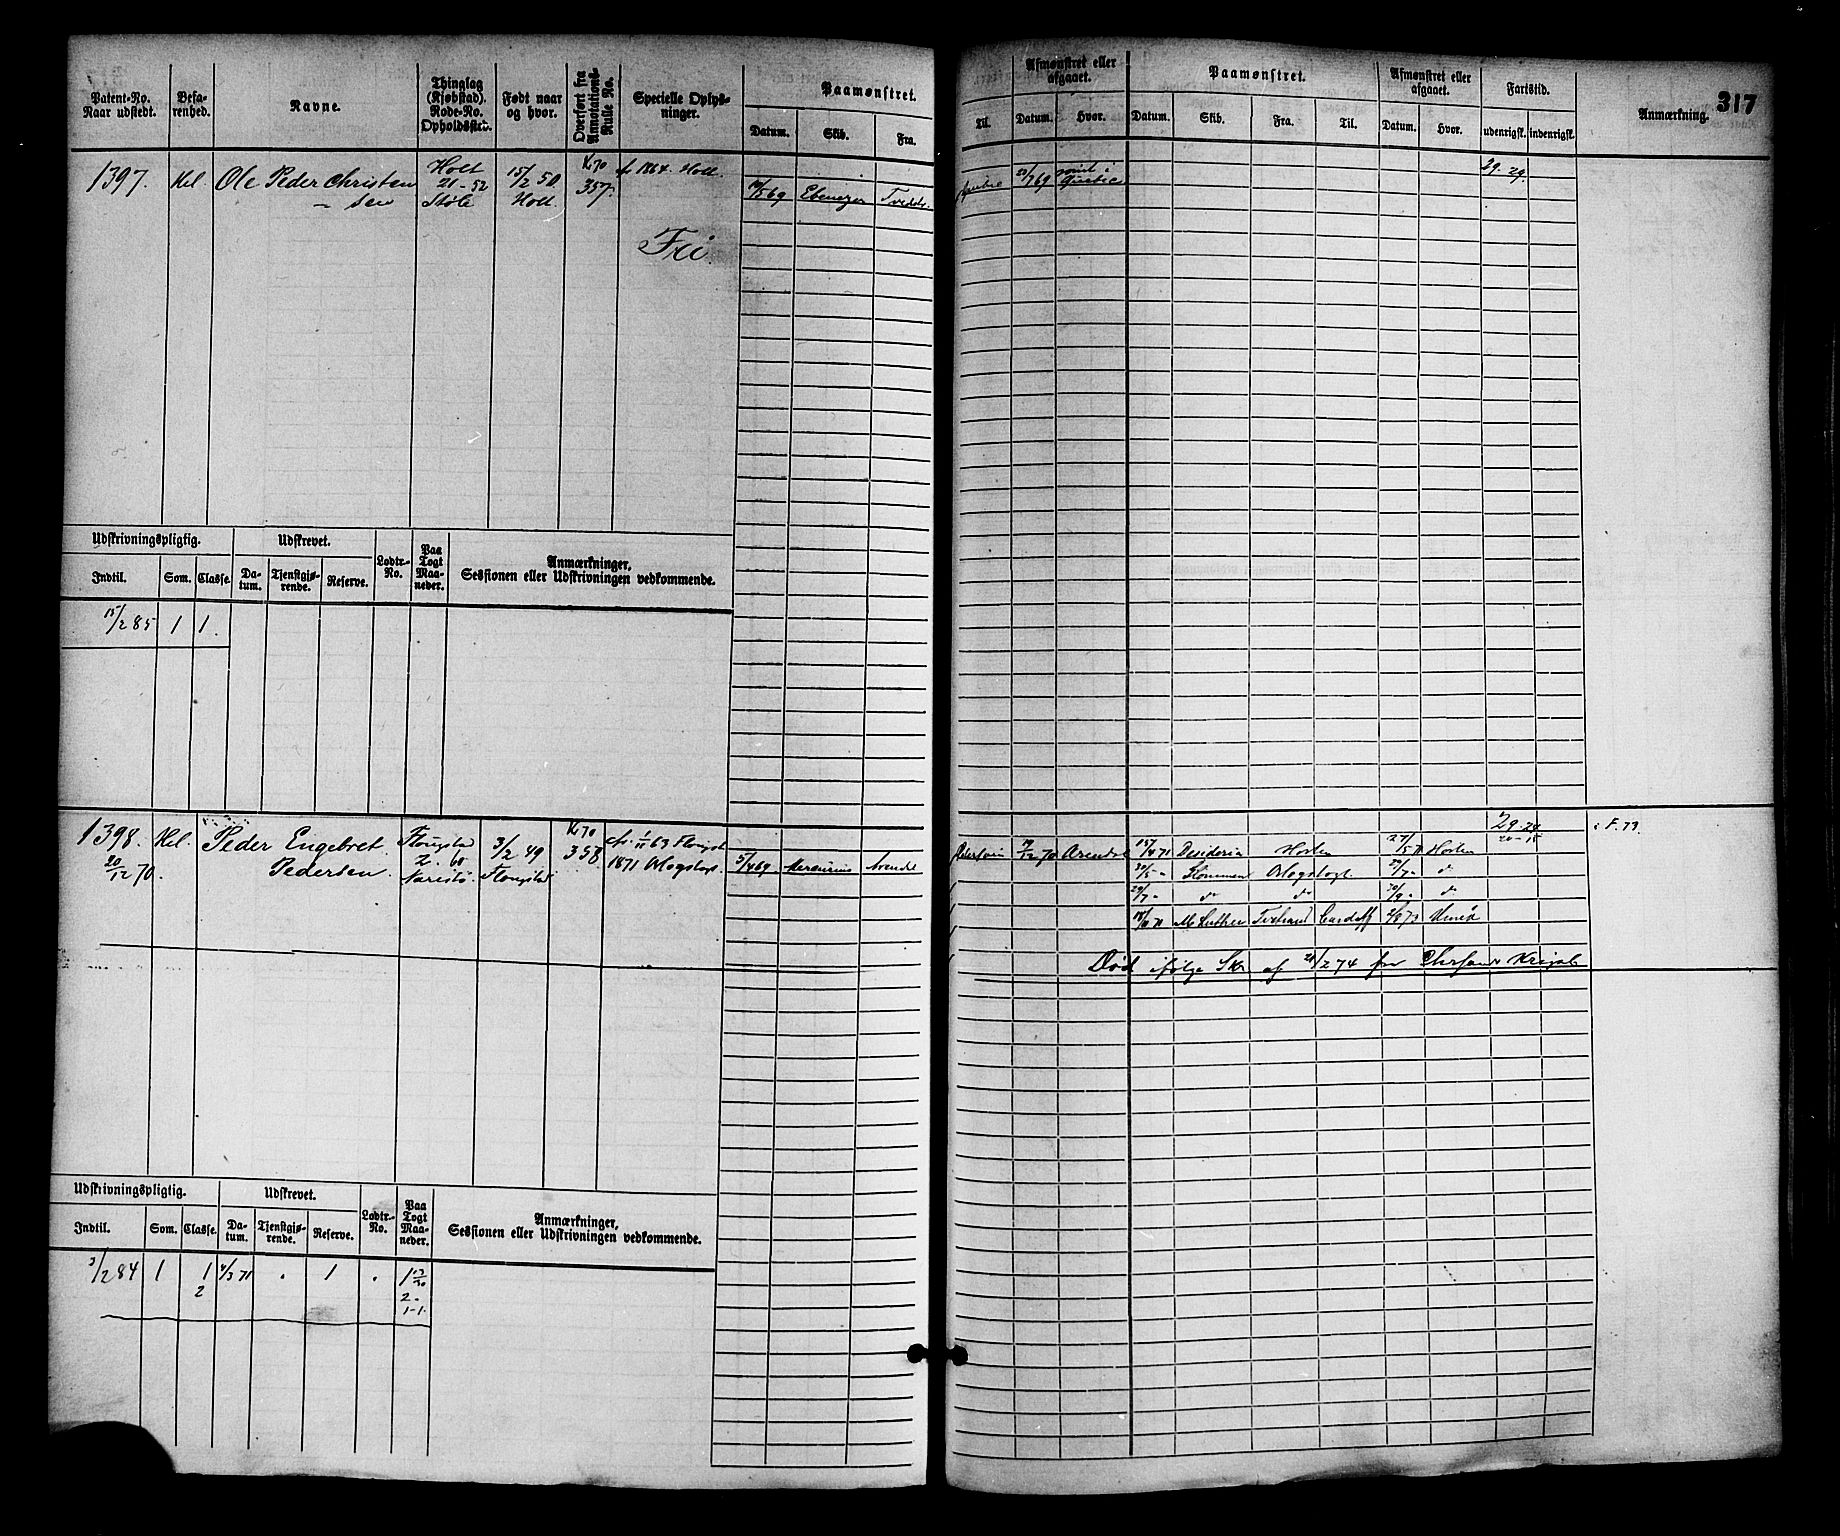 317
Patent-No. Naar udstedt.
Befarenhed.
Navne.
Thinglag (Kjøbstad). Rode-No. Opholdssted.
Født naar og hvor.
Overført fra Annotations-Rulle No.
Specielle Oplysninger.
Paamønstret.
Datum. Skib. Fra.
Til.
Afmønstret eller afgaaet.
Datum. Hvor.
Paamønstret.
Datum. Skib. Fra. Til.
Afmønstret eller afgaaet.
Datum. Hvor.
Fartstid.
udenrigsk. indenrigsk.
Anmærkning.
1397. Hel. Ole Peder Christen
- sen
Holt
21-52
Støle
15/2 50
Holt
K. 70
357.
1864. Holt.
Fri.
/5 69 Ebenezer Tvedestr.
/7 69 Quebec
29. 29.
Udskrivningspligtig. Udskrevet. Lodtr.-No. Paa Togt Maaneder. Anmærkninger, Sessionen eller Udskrivningen vedkommende.
Indtil. Som. Classe. Datum. Tjenstgjørende. Reserve.
15/2 85 1 1.
1398. Hel. Peder Engebret
20/12 70. Pedersen.
Flougstad
2. 60
Narestø
3/2 49
Flougstad
K. 70
358
1/11 63 Flougst.
1871 Orlogstogt.
5/4 69 Mercurius Arendl
/12 70 Arendal
15/4 71 Desideria Horten 27/5 71 Horten
30/5 " Nornen Orlogstogt 29/7 " d°
29/7 " d° d° 30/9 " d°
18/10 71 M. Luther Tvedestrand Cardiff 2/8 73
29. 29
: F. 73.
Død ifølge Skr. af 21/2 74 fra Chrsands Krigsk.
Udskrivningspligtig. Udskrevet. Lodtr.-No. Paa Togt Maaneder. Anmærkninger, Sessionen eller Udskrivningen vedkommende.
Indtil. Som. Classe. Datum. Tjenstgjørende. Reserve.
3/2 84 1 1 4/3 71 . 1 . 1
2 2.
1-1.